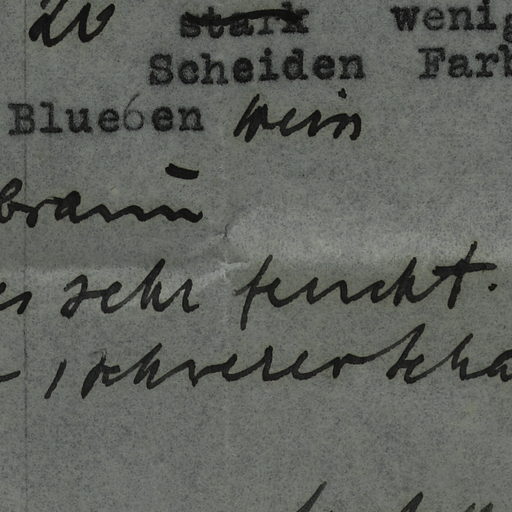 20 stark wenig
Scheiden Farb
Blueben wein
braun
es sehr feucht.
, schwerer Scha